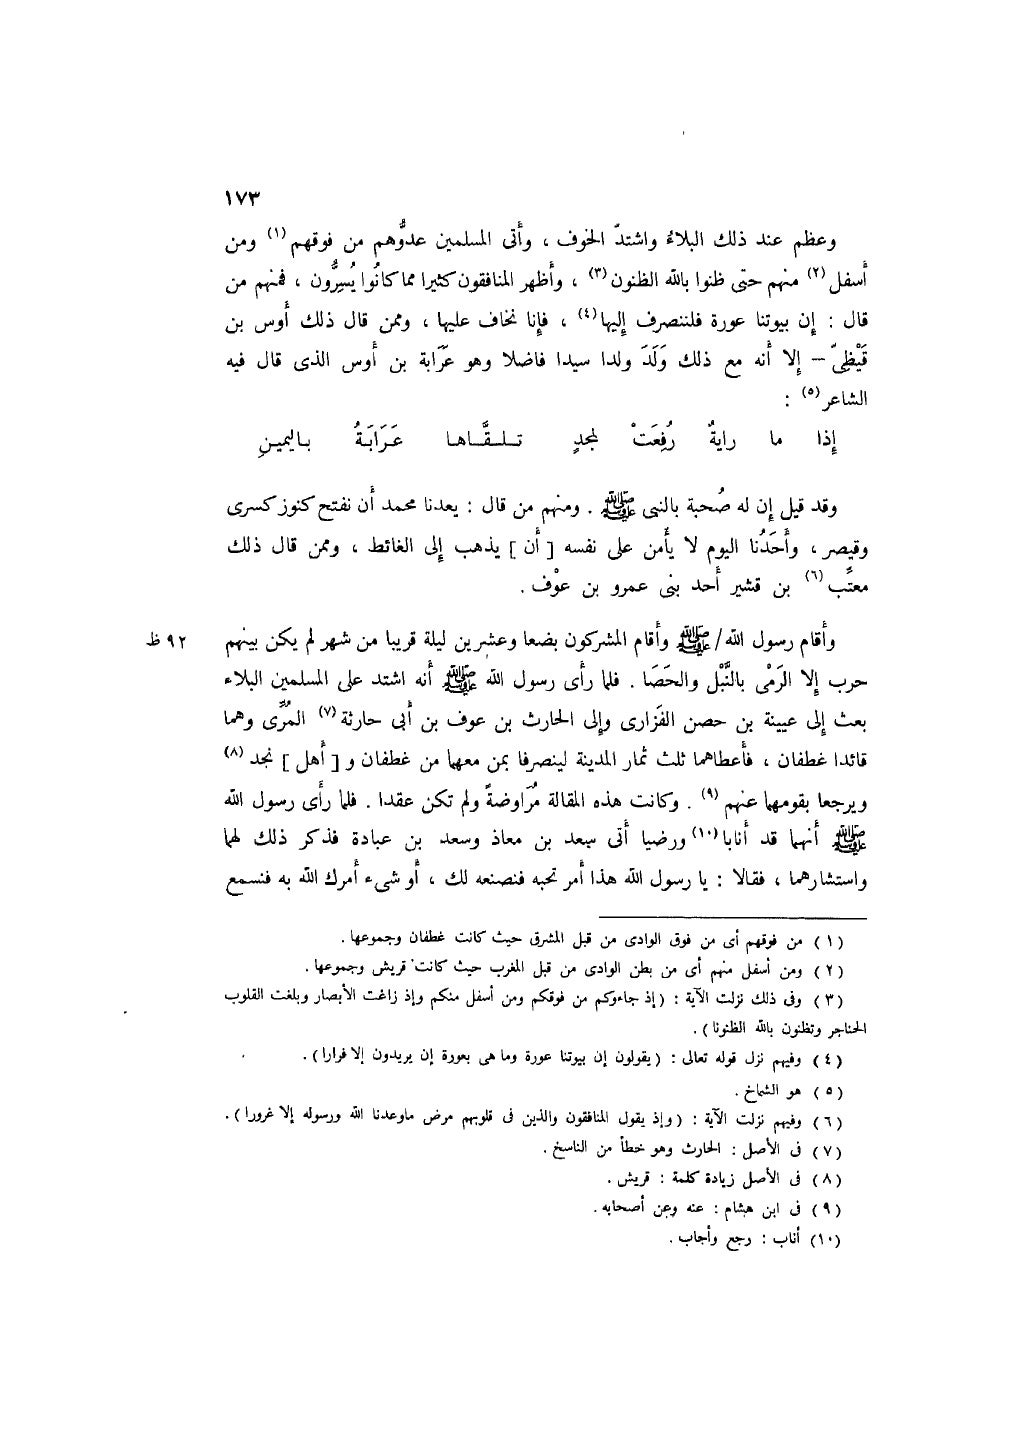 ١٧٣
وعظم عند ذلك البلاءُ واشتدّ الخوف ، وأتى المسلمين عدوُّهم من فوقهم (١) ومن
أسفل (٢) منهم حتى ظنوا بالله الظنون (٣) ، وأظهر المنافقون كثيرا مما كانُوا يُسِرُّون ، فمنهم من
قال : إن بيوتنا عورة فلننصرف إليها (٤) ، فإنا نخاف عليها ، وممن قال ذلك أوس بن
قَيْظِىّ – إلا أنه مع ذلك وَلَدَ ولدا سيدا فاضلا وهو عَرَابة بن أوس الذى قال فيه
الشاعر (٥) :
إذا ما رايةٌ رُفِعَتْ لمجدٍ تلقَّاها عَرَابَةُ باليمينِ
وقد قيل إن له صُحبة بالنبى ﷺ . ومنهم من قال : يعدنا محمد أن نفتح كنوز كسرى
وقيصر ، وأَحَدُنا اليوم لا يأمن على نفسه [ أن ] يذهب إلى الغائط ، وممن قال ذلك
معتِّب (٦) بن قشير أحد بنى عمرو بن عوْف .
وأقام رسول الله/ ﷺ وأقام المشركون بضعا وعشرين ليلة قريبا من شهر لم يكن بينهم ٩٢ ظ
حرب إلا الرَمْى بالنَّبْل والحَصَا . فلما رأى رسول الله ﷺ أنه اشتد على المسلمين البلاء
بعث إلى عيينة بن حصن الفَزارى وإلى الحارث بن عوف بن أبى حارثة (٧) المُرِّى وهما
قائدا غطفان ، فأعطاهما ثلث ثمار المدينة لينصرفا بمن معهما من غطفان و [ أهل ] نجد (٨)
ويرجعا بقومهما عنهم (٩) . وكانت هذه المقالة مُرَاوضةً ولم تكن عقدا . فلما رأى رسول الله
ﷺ أنهما قد أنابا (١٠) ورضيا أتى سعد بن معاذ وسعد بن عبادة فذكر ذلك لهما
واستشارهما ، فقالا : يا رسول الله هذا أمر تحبه فنصنعه لك ، أو شىء أمرك الله به فنسمع
(١) من فوقهم أى من فوق الوادى من قبل المشرق حيث كانت غطفان وجموعها .
(٢) ومن أسفل منهم أى من بطن الوادى من قبل المغرب حيث كانت قريش وجموعها .
(٣) وفى ذلك نزلت الآية : (إذ جاءوكم من فوقكم ومن أسفل منكم وإذ زاغت الأبصار وبلغت القلوب
الحناجر وتظنون بالله الظنونا ) .
(٤) وفيهم نزل قوله تعالى : (يقولون إن بيوتنا عورة وما هى بعورة إن يريدون إلا فرارا ) .
(٥) هو الشماخ .
(٦) وفيهم نزلت الآية : (وإذ يقول المنافقون والذين فى قلوبهم مرض ماوعدنا الله ورسوله إلا غرورا ) .
(٧) فى الأصل : الحارث وهو خطأ من الناسخ .
(٨) فى الأصل زيادة كلمة : قريش .
(٩) فى ابن هشام : عنه وعن أصحابه .
(١٠) أناب : رجع وأجاب .